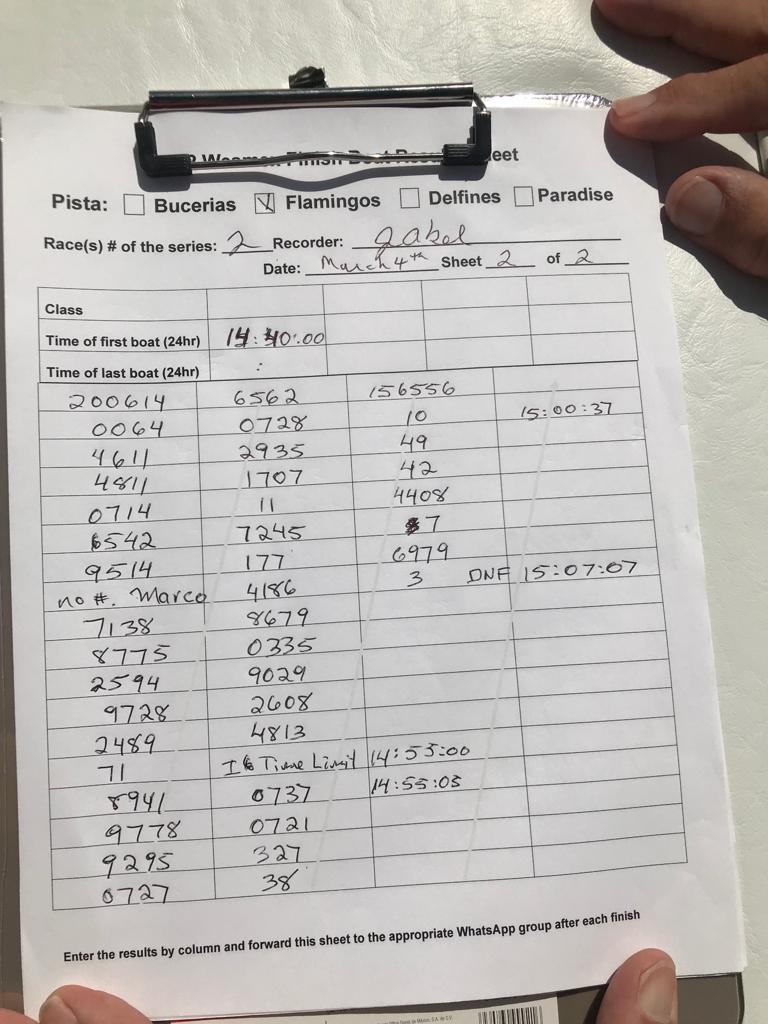 Finish Boat
eet
Pista: Bucerias Flamingos Delfines Paradise
Race(s) # of the series: 2 Recorder:
Date: March 4th Sheet 2 of 2
Class
Time of first boat (24hr) 14:40:00
Time of last boat (24hr) :
200614 6562 156556
0064 0728 10 15:00:37
4611 2935 49
4811 1707 42
0714 11 4408
6542 7245 7
9514 177 6979
no #. Marco 4186 3 DNF 15:07:07
7138 8679
8775 0335
2594 9029
9728 2608
2489 4813
71 Time Limit 14:53:00
8941 0737 14:55:03
9778 0721
9295 327
0727 38
Enter the results by column and forward this sheet to the appropriate WhatsApp group after each finish